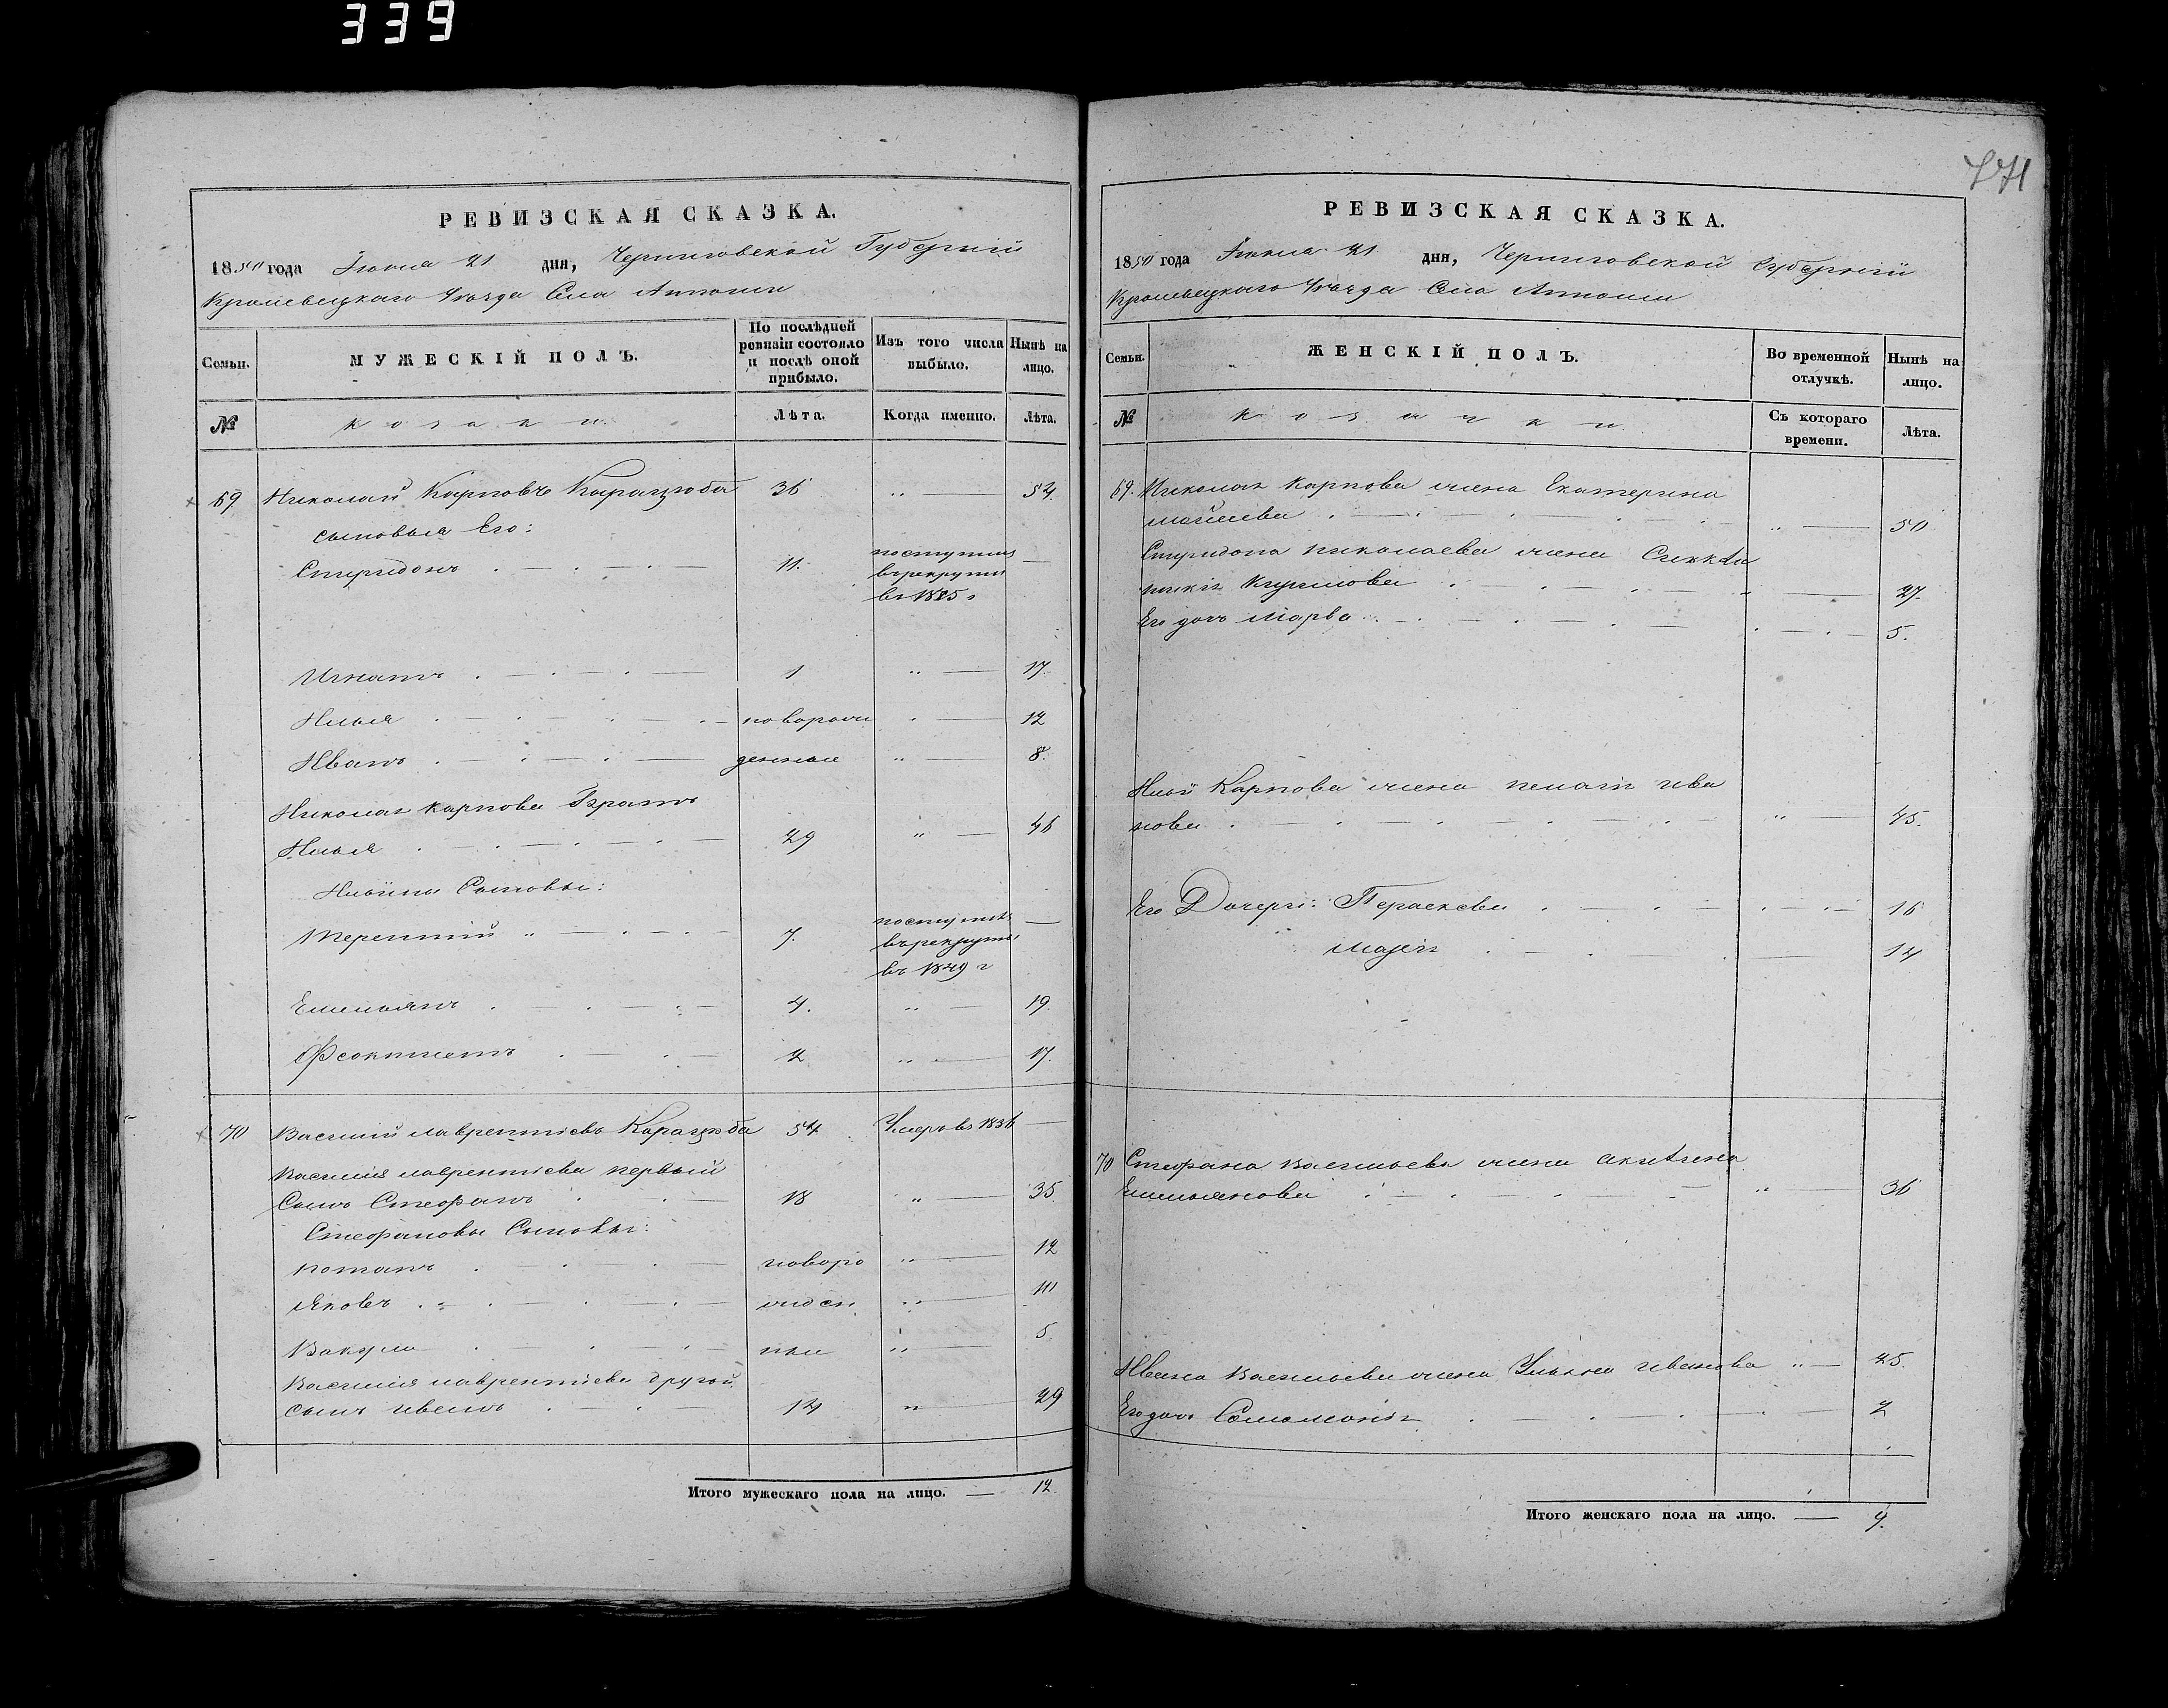 339
РЕВИЗСКАЯ СКАЗКА.
1850 года Іюня 21 дня, Черниговской Губерніи
Кролевецкаго Уѣзда Села
Семьи.
МУЖЕСКІЙ ПОЛЪ.
По послѣдней ревизіи состояло и послѣ оной прибыло.
Изъ того числа выбыло.
Нынѣ на лицо.
№
козаки
Лѣта.
Когда именно.
Лѣта.
69 Николай Карповъ 36 „ 54.
сыновья Его:
Спиридонъ 11. поступилъ въ рекруты
Игнатъ 1 „ 17.
Илья новорож 12
Иванъ денные „ 8.
Николая Карпова Братъ
Илья 29 „ 46
Ильины Сыновья:
Терентій 7. поступилъ въ рекруты въ 1849 г
Емельянъ 4. „ 19.
Феоктистъ 2 „ 17.
70 Василій Лаврентіевъ 54 Умеръ въ 1836
Василія Лаврентіева первый
Сынъ Стефанъ 18 „ 35.
Стефановы Сыновья:
Потапъ новоро „ 12
Яковъ жден „ 10
Вакула ные „ 5.
Василія Лаврентіева другой
сынъ Иванъ 14 „ 29
Итого мужескаго пола на лицо. — 12.
РЕВИЗСКАЯ СКАЗКА.
1850 года Іюня 21 дня, Черниговской Губерніи
Кролевецкаго Уѣзда Села
Семьи.
ЖЕНСКІЙ ПОЛЪ.
Во временной отлучкѣ.
Нынѣ на лицо.
№
козачки
Съ котораго времени.
Лѣта.
69. Николая Карпова жена Екатерина
„ 50
Спиридона Николаева жена
27.
Его дочь Марва 5.
Ильи Карпова жена Ива
нова „ 45.
Его Дочери: Параскева 16
Марія 14
70 Стефана Васильева жена Акилина
Емельянова „ 36
Ивана Васильева жена Ульяна Иванова „ 25.
Его дочь Соломонія 2
Итого женскаго пола на лицо. — 9.